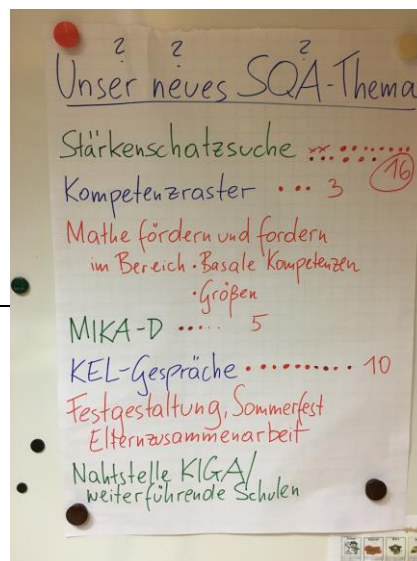 ? ? ?
Unser neues SQA-Thema
Stärkenschatzsuche
16
Kompetenzraster ... 3
Mathe fördern und fordern
im Bereich · Basale Kompetenzen
· Größen
MIKA-D ..... 5
KEL-Gespräche .......... 10
Festgestaltung, Sommerfest
Elternzusammenarbeit
Nahtstelle KIGA/
weiterführende Schulen